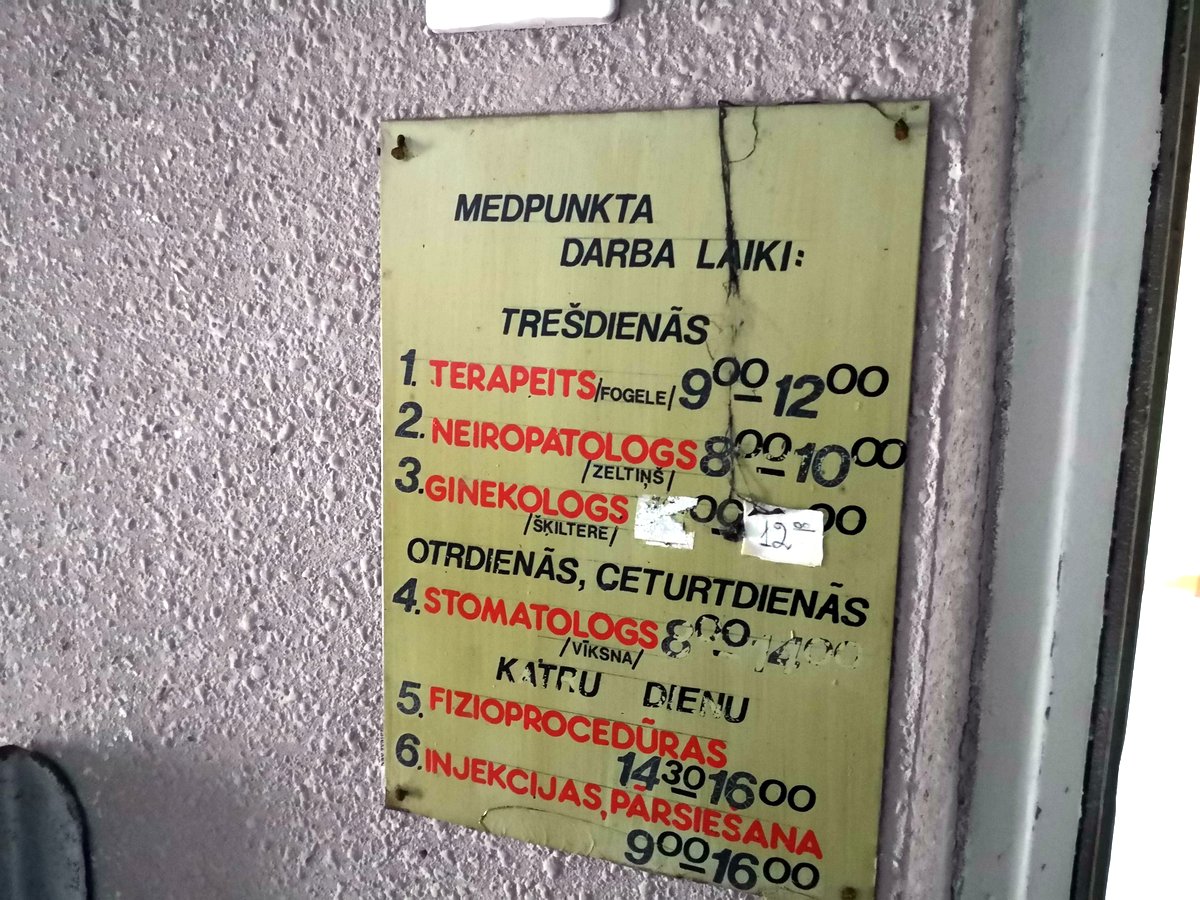 MEDPUNKTA
DARBA LAIKI:
TREŠDIENĀS
1. TERAPEITS /FOGELE/ 9⁰⁰-12⁰⁰
2. NEIROPATOLOGS 8⁰⁰-10⁰⁰
/ZELTIŅŠ/
3. GINEKOLOGS ⁰⁰- 12⁰⁰ ⁰⁰
/ŠĶILTERE/
OTRDIENĀS, CETURTDIENĀS
4. STOMATOLOGS 8⁰⁰-14⁰⁰
/VĪKSNA/
KATRU DIENU
5. FIZIOPROCEDŪRAS
14³⁰-16⁰⁰
6. INJEKCIJAS, PĀRSIEŠANA
9⁰⁰-16⁰⁰